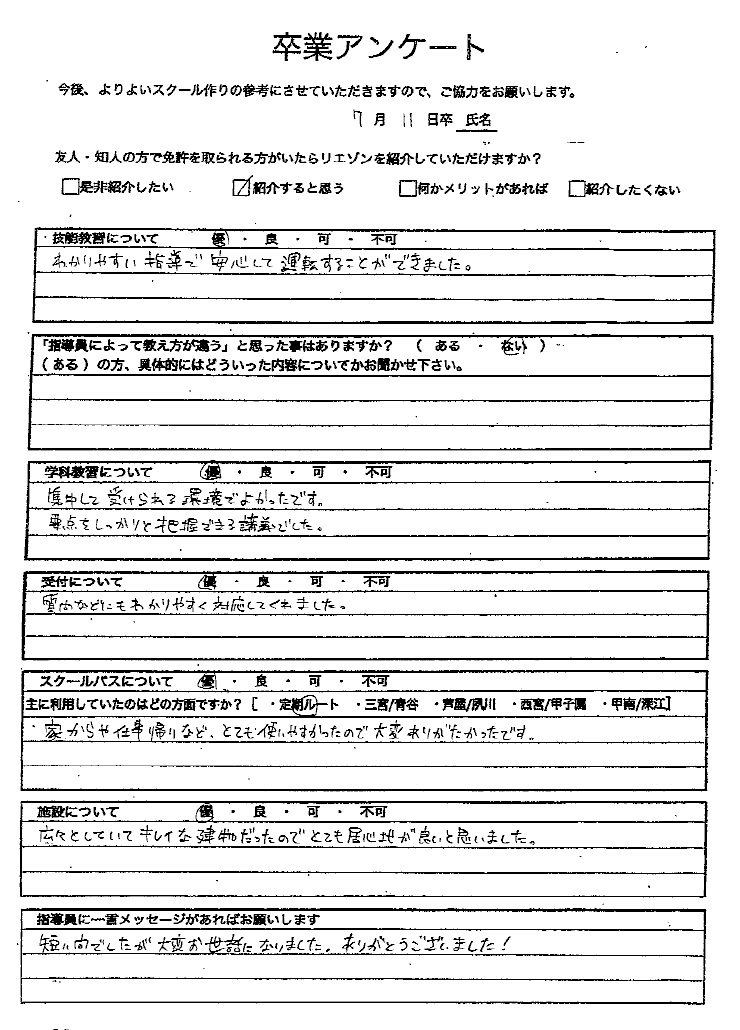 卒業アンケート
今後、よりよいスクール作りの参考にさせていただきますので、ご協力をお願いします。
7月 11日卒 氏名
友人・知人の方で免許を取られる方がいたらリエゾンを紹介していただけますか?
□是非紹介したい ☑紹介すると思う □何かメリットがあれば □紹介したくない
技能教習について 優 ・ 良 ・ 可 ・ 不可
わかりやすい指導で安心して運転することができました。
「指導員によって教え方が違う」と思った事はありますか? ( ある ・ ない )
(ある)の方、具体的にはどういった内容についてかお聞かせ下さい。
学科教習について 優 ・ 良 ・ 可 ・ 不可
集中して受けられる環境でよかったです。
要点をしっかりと把握できる講義でした。
受付について 優 ・ 良 ・ 可 ・ 不可
質問などにもわかりやすく対応してくれました。
スクールバスについて 優 ・ 良 ・ 可 ・ 不可
主に利用していたのはどの方面ですか?[ ・定期ルート ・三宮/青谷 ・芦屋/夙川 ・西宮/甲子園 ・甲南/深江]
家からや仕事帰りなど、とても使いやすかったので大変ありがたかったです。
施設について 優 ・ 良 ・ 可 ・ 不可
広々としていてキレイな建物だったのでとても居心地が良いと思いました。
指導員に一言メッセージがあればお願いします
短い間でしたが大変お世話になりました。ありがとうございました!